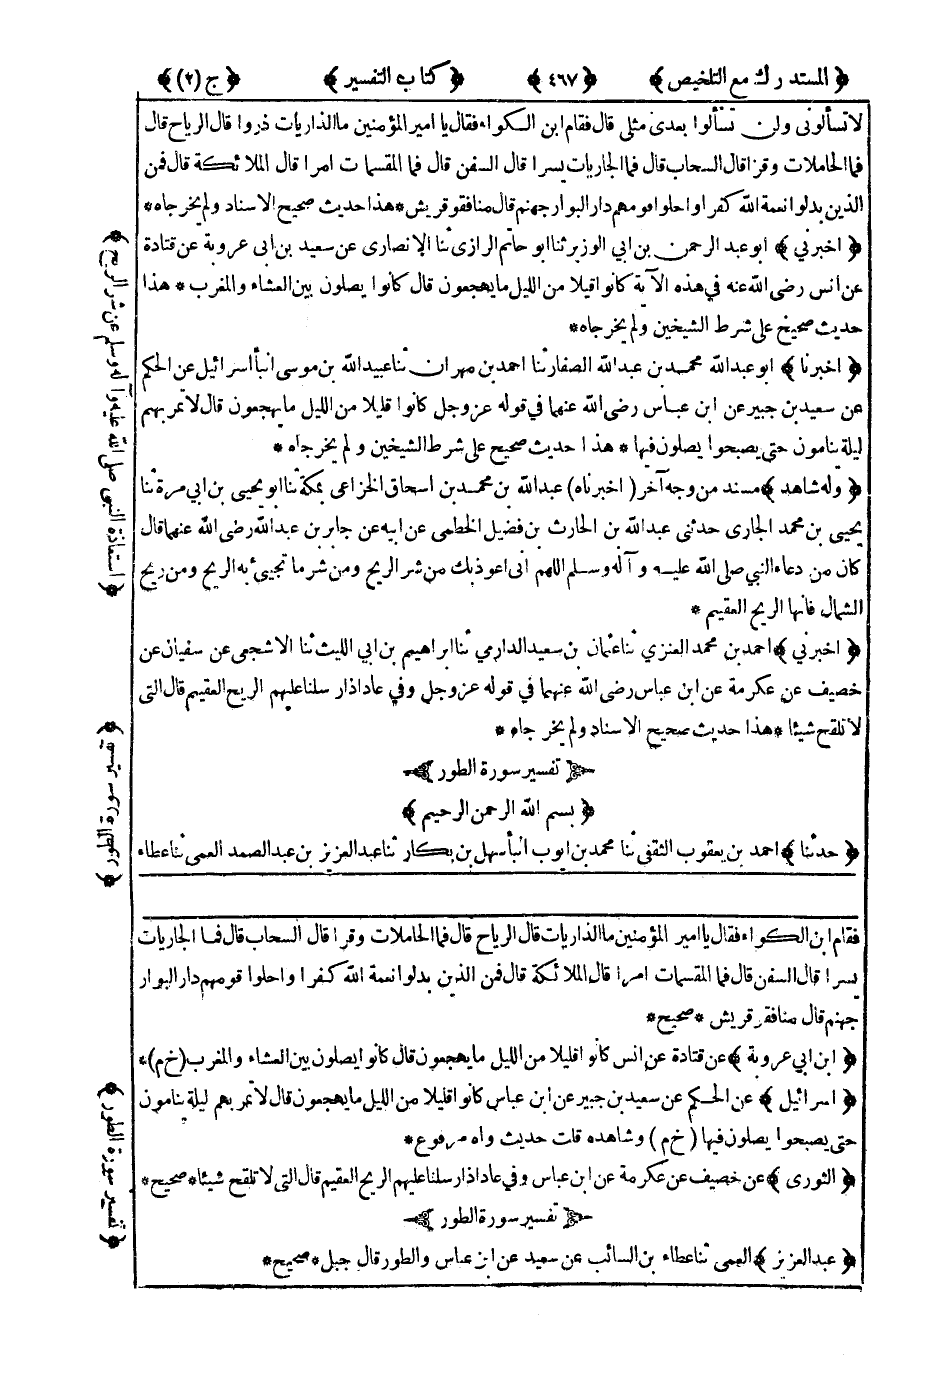 ﴿ المستدرك مع التلخيص ﴾ ﴿ ٤٦٧ ﴾ ﴿ كتاب التفسير ﴾ ﴿ ج (٢) ﴾
لا تسألونى ولن تسألوا بعدى مثلى قال فقام ابن الكواء فقال يا امير المؤمنين ما الذاريات ذروا قال الرياح قال
فما الحاملات وقرا قال السحاب قال فما الجاريات يسرا قال السفن قال فما المقسمات امرا قال الملائكة قال فمن
الذين بدلوا نعمة الله كفرا واحلوا قومهم دار البوار جهنم قال منافقو قريش * هذا حديث صحيح الاسناد ولم يخرجاه *
﴿ اخبرني ﴾ ابو عبد الرحمن بن ابي الوزير ثنا ابو حاتم الرازى ثنا الانصارى عن سعيد بن ابى عروبة عن قتادة
عن انس رضى الله عنه في هذه الآية كانوا قليلا من الليل ما يهجعون قال كانوا يصلون بين العشاء والمغرب * هذا
حديث صحيح على شرط الشيخين ولم يخرجاه *
﴿ اخبرنا ﴾ ابو عبد الله محمد بن عبد الله الصفار ثنا احمد بن مهران ثنا عبيد الله بن موسى انبأ اسرائيل عن الحكم
عن سعيد بن جبير عن ابن عباس رضى الله عنهما في قوله عز وجل كانوا قليلا من الليل ما يهجعون قال لا تمر بهم
ليلة ينامون حتى يصبحوا يصلون فيها * هذا حديث صحيح على شرط الشيخين ولم يخرجاه *
﴿ وله شاهد ﴾ مسند من وجه آخر ( اخبرناه ) عبد الله بن محمد بن اسحاق الخزاعى بمكة ثنا ابو يحيى بن ابي مرة ثنا
يحيى بن محمد الجارى حدثنى عبد الله بن الحارث بن فضيل الخطمى عن ابيه عن جابر بن عبد الله رضى الله عنهما قال
كان من دعاء النبي صلى الله عليه وآله وسلم اللهم انى اعوذ بك من شر الريح ومن شر ما تجيئ به الريح ومن ريح
الشمال فانها الريح العقيم *
﴿ اخبرني ﴾ احمد بن محمد العنزي ثنا عثمان بن سعيد الدارمي ثنا ابراهيم بن ابي الليث ثنا الاشجعى عن سفيان عن
خصيف عن عكرمة عن ابن عباس رضى الله عنهما في قوله عز وجل وفي عاد اذ ارسلنا عليهم الريح العقيم قال التى
لا تلقح شيئا * هذا حديث صحيح الاسناد ولم يخرجاه *
تفسير سورة الطور
﴿ بسم الله الرحمن الرحيم ﴾
﴿ حدثنا ﴾ احمد بن يعقوب الثقفى ثنا محمد بن ايوب انبأ سهل بن بكار ثنا عبد العزيز بن عبد الصمد العمى ثنا عطاء
فقام ابن الكواء فقال يا امير المؤمنين ما الذاريات قال الرياح قال فما الحاملات وقرا قال السحاب قال فما الجاريات
يسرا قال السفن قال فما المقسمات امرا قال الملائكة قال فمن الذين بدلوا نعمة الله كفرا واحلوا قومهم دار البوار
جهنم قال منافقو قريش * صحيح *
﴿ ابن ابي عروبة ﴾ عن قتادة عن انس كانوا قليلا من الليل ما يهجعون قال كانوا يصلون بين العشاء والمغرب (خ م) *
﴿ اسرائيل ﴾ عن الحكم عن سعيد بن جبير عن ابن عباس كانوا قليلا من الليل ما يهجعون قال لا تمر بهم ليلة ينامون
حتى يصبحوا يصلون فيها ( خ م ) وشاهده قلت حديث واه مرفوع *
﴿ الثورى ﴾ عن خصيف عن عكرمة عن ابن عباس وفي عاد اذ ارسلنا عليهم الريح العقيم قال التى لا تلقح شيئا * صحيح *
تفسير سورة الطور
﴿ عبد العزيز ﴾ العمى ثنا عطاء بن السائب عن سعيد عن ابن عباس والطور قال جبل * صحيح *
﴿ استعاذة النبى صلى الله عليه وآله وسلم عن شر الريح ﴾
﴿ تفسير سورة الطور ﴾